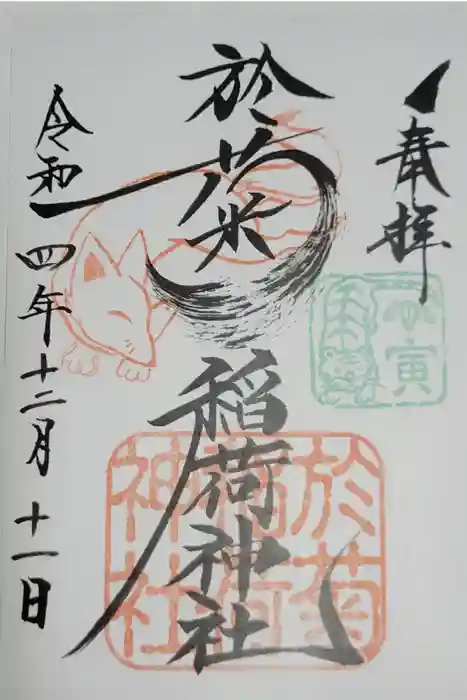 奉拝
於菊
稲荷神社
令和四年十二月十一日
於菊稲荷神社
寅